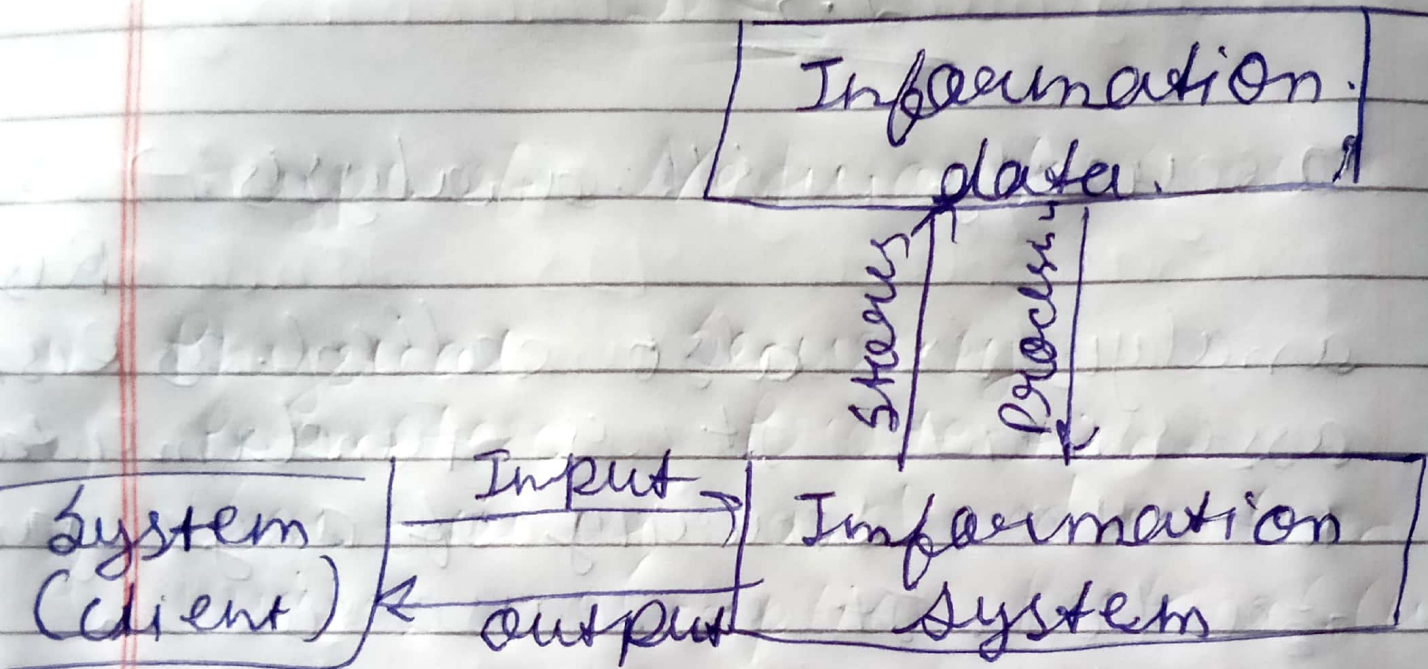 Information.
data.
Stores
Process
Input
System
(client)
output
Information
system